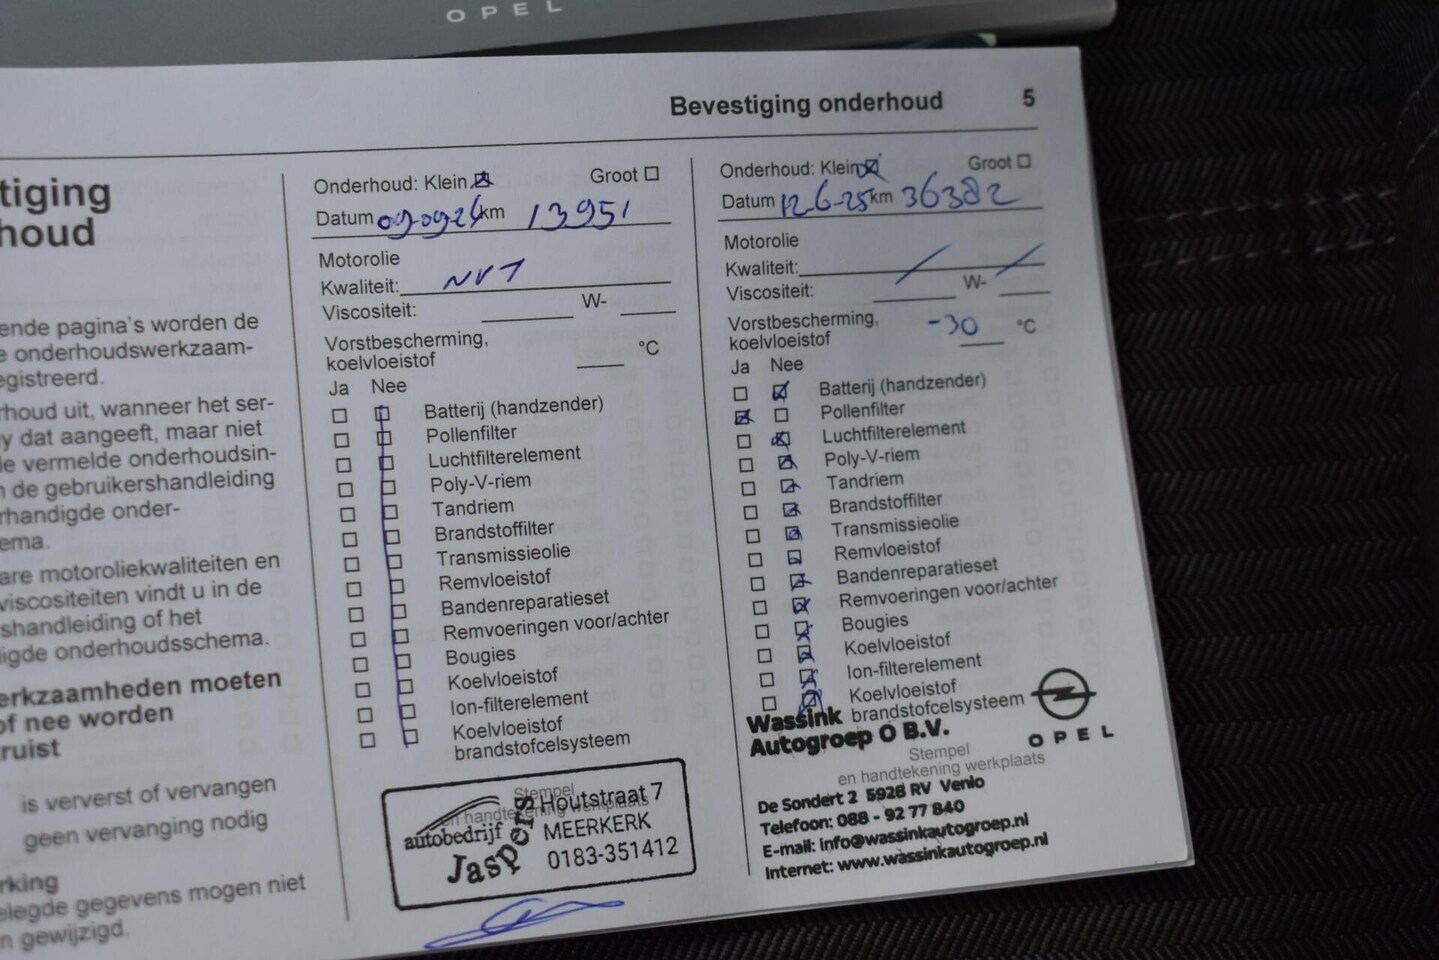 OPEL
Bevestiging onderhoud 5
tiging
houd
ende pagina's worden de
e onderhoudswerkzaam-
egistreerd.
rhoud uit, wanneer het ser-
y dat aangeeft, maar niet
le vermelde onderhoudsin-
n de gebruikershandleiding
rhandigde onder-
ema.
are motoroliekwaliteiten en
viscositeiten vindt u in de
shandleiding of het
ligde onderhoudsschema.
erkzaamheden moeten
of nee worden
ruist
is ververst of vervangen
geen vervanging nodig
rking
elegde gegevens mogen niet
n gewijzigd.
Onderhoud: Klein Groot
Datum 09-09-24 km 13951
Motorolie
Kwaliteit: NVT
Viscositeit: W-
Vorstbescherming,
koelvloeistof °C
Ja Nee
Batterij (handzender)
Pollenfilter
Luchtfilterelement
Poly-V-riem
Tandriem
Brandstoffilter
Transmissieolie
Remvloeistof
Bandenreparatieset
Remvoeringen voor/achter
Bougies
Koelvloeistof
Ion-filterelement
Koelvloeistof
brandstofcelsysteem
Stempel
en handtekening werkplaats
autobedrijf
Jaspers
Houtstraat 7
MEERKERK
0183-351412
Onderhoud: Klein Groot
Datum 12-6-25 km 36382
Motorolie
Kwaliteit:
Viscositeit: W-
Vorstbescherming,
koelvloeistof -30 °C
Ja Nee
Batterij (handzender)
Pollenfilter
Luchtfilterelement
Poly-V-riem
Tandriem
Brandstoffilter
Transmissieolie
Remvloeistof
Bandenreparatieset
Remvoeringen voor/achter
Bougies
Koelvloeistof
Ion-filterelement
Koelvloeistof
brandstofcelsysteem
Wassink
Autogroep O B.V.
OPEL
Stempel
en handtekening werkplaats
De Sondert 2 5928 RV Venlo
Telefoon: 088 - 92 77 840
E-mail: info@wassinkautogroep.nl
Internet: www.wassinkautogroep.nl